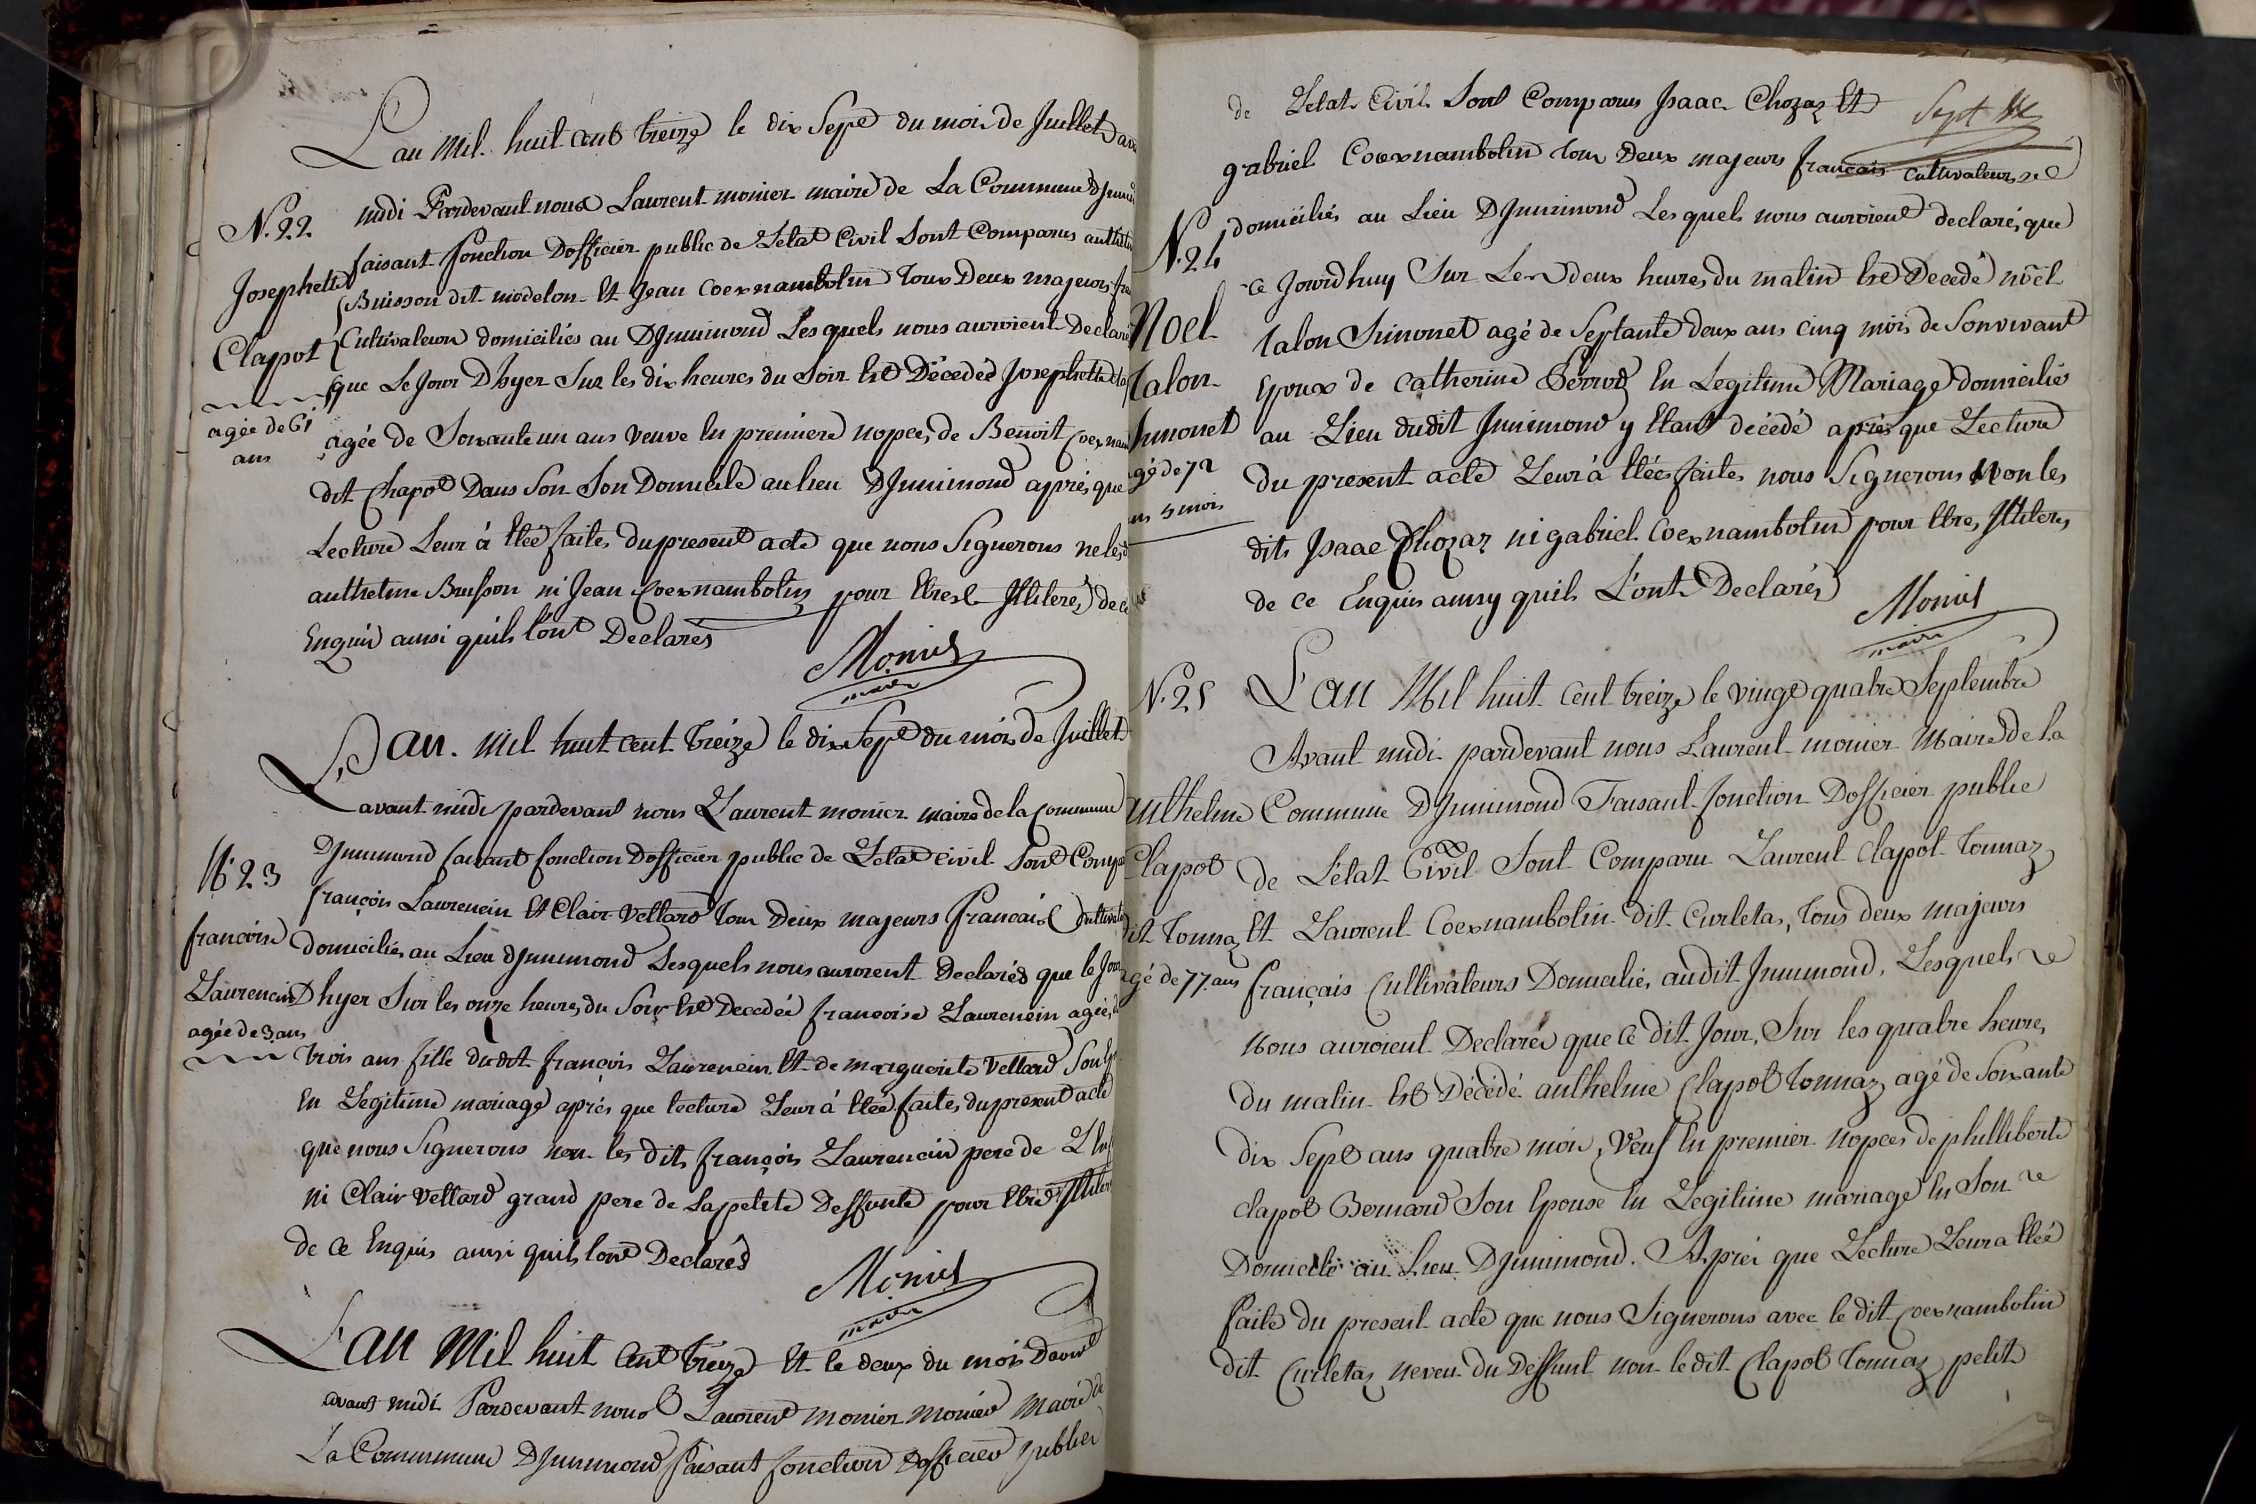 L'an Mil huit cent treize le dix Sept du mois de Juillet avant
N.º 22 midi Pardevant nous Laurent monier maire de La Commune
faisant fonction Dofficier public de Létat Civil Sont Comparus
Josephette Buisson dit modelon Et Jean Coexnambolin Tous Deux majeurs
Clapot Cultivateurs domiciliés au DJnnimond Lesquels nous auroient Declaré
que Le Jour Dhyer Sur les dix heures du Soir Est Décédée Josephette
agée de 61 ans
agée de Soixante un ans veuve En premiere nopces de Benoit
dit Chapot Dans Son Son Domicile au lieu DJnnimond après que
Lecture Leur à Etée faites du present acte que nous Signerons
anthelme Buisson ni Jean Coexnambolin pour Etre Jlliterés de ce
Enquis ainsi quils l'ont Declarés
Monier
maire
L'an Mil huit cent treize le dix Sept du mois de Juillet
avant midi pardevant nous Laurent monier maire de la Commune
DJnnimond faisant fonction Dofficier public de Létat civil Sont
N.º 23
françois Laurencin Et Clair Vettard Tous Deux majeurs Francais
françoise domiciliés au Lieu DJnnimond Lesquels nous auroient Declarés que le Jour
Laurencin Dhyer Sur les onze heures du Soir Est Decedée francoise Laurencin agée de
agée de 3 ans
trois ans fille dudit françois Laurencin Et de marguerite Vettard Son
En Legitime mariage après que lecture Leur à Etée faites du present acte
que nous Signerons non les dits françois Laurencin pere de
ni Clair Vettard grand pere de La petite Deffunte pour Etre
de ce Enquis aussi quils l'ont Declarés
Monier
maire
L'an Mil huit Cent treize Et le deux du mois Davril
avant midi Pardevant nous Laurent monier monier maire de
La Commune DJnnimond faisant fonction Dofficier public
de Létat Civil Sont Comparus Jsaac Chozaz Et
gabriel Coexnambolin Tous Deux majeurs francais cultivateurs
N.º 24 domiciliés au Lieu DJnnimond Lesquels nous auroient declaré, que
ce Jourdhuy Sur Les deux heures du matin Est Decedé noël
Noel
Talon
Simonet
agé de 72
ans 5 mois
talon Simonet agé de Septante deux ans cinq mois de Son vivant
Epoux de Catherine En Legitime Mariage domiciliés
au Lieu dudit Jnnimond y Etant décédé après que Lecture
du present acte Leur à Etées faites nous Signerons Non les
dits Jsaac Chozaz ni gabriel Coexnambolin pour Etres Jlliterés
de ce Enquis ainsy quils L'ont Declarés
Monier
maire
N.º 25 L'an Mil huit cent treize le vingt quatre Septembre
Avant midi pardevant nous Laurent monier Maire de la
Anthelme Commune DJnnimond Faisant fonction Dofficier public
Clapot de L'état Civil Sont Comparu Laurent Clapot Tonnaz
dit Tonnaz Et Laurent Coexnambolin dit Curletaz, Tous deux majeurs
agé de 77 ans français Cultivateurs Domicilies audit Jnnimond, Lesquels
Nous auroient Declarés que ce dit Jour, Sur les quatre heures
du matin Est Décédé anthelme Clapot Tonnaz agé de Soixante
dix Sept ans quatre mois, Veuf En premier nopces de phillibert
Clapot Bernard Son Epouse En Legitime mariage En Son
Domicile au Lieu DJnnimond. Après que Lecture Leur a Etée
faite du present acte que nous Signerons avec le dit coexnambolin
dit Curletaz neveu du Deffunt non ledit Clapot Tonnaz petit